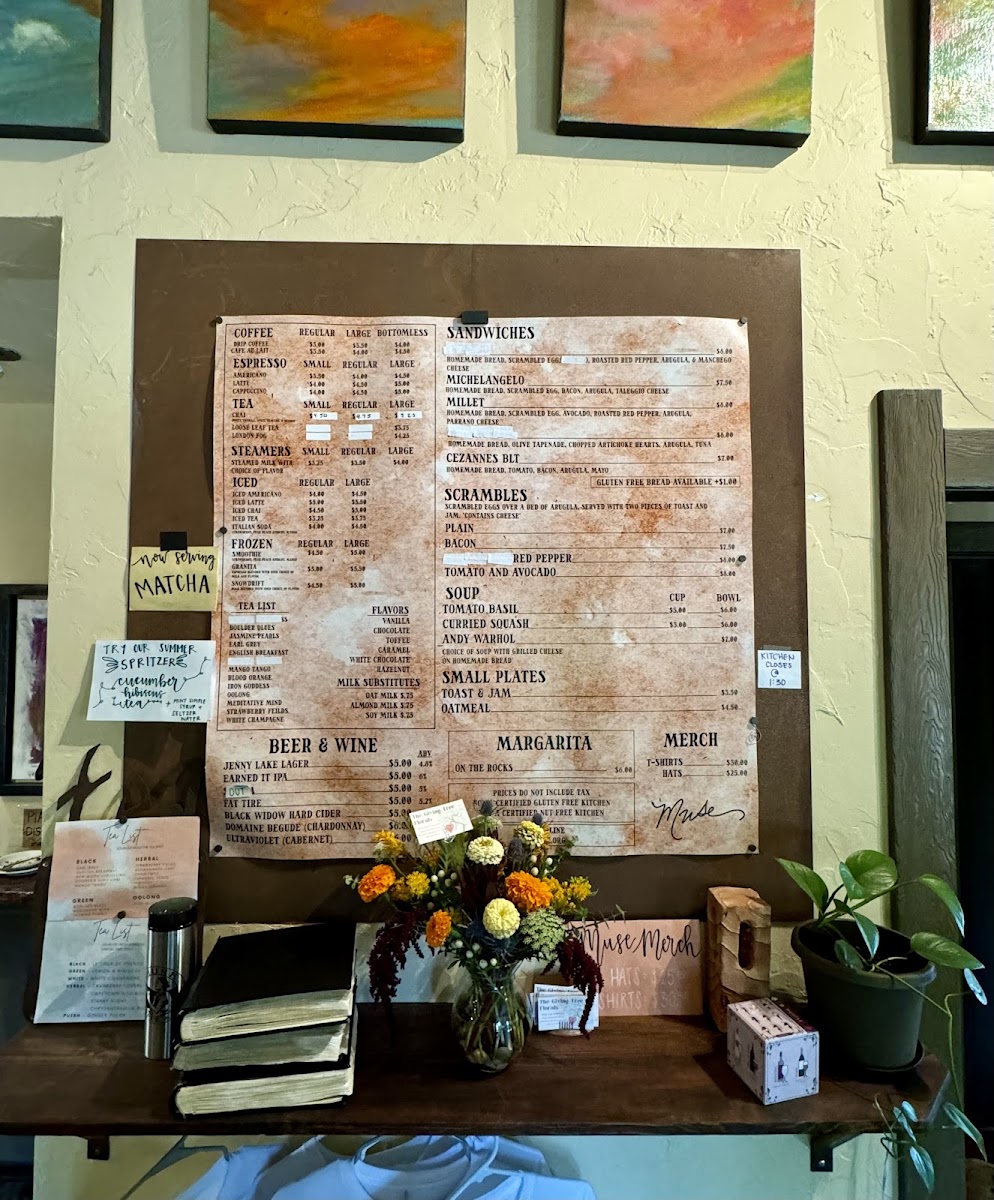 COFFEE REGULAR LARGE BOTTOMLESS
DRIP COFFEE $3.00 $3.50 $4.00
CAFE AU LAIT $3.50 $4.00 $4.00
ESPRESSO SMALL REGULAR LARGE
AMERICANO $3.50 $4.00 $4.50
LATTE $4.00 $4.50 $5.00
CAPPUCCINO $4.00 $4.50 $5.00
TEA SMALL REGULAR LARGE
CHAI $4.50 $4.75 $5.25
LOOSE LEAF TEA $3.75
LONDON FOG $4.25
STEAMERS SMALL REGULAR LARGE
STEAMED MILK WITH $3.25 $3.50 $4.00
CHOICE OF FLAVOR
ICED REGULAR LARGE
ICED AMERICANO $4.00 $4.50
ICED LATTE $5.00 $5.50
ICED CHAI $4.50 $5.00
ICED TEA $3.25 $3.75
ITALIAN SODA $4.00 $4.50
FROZEN REGULAR LARGE
SMOOTHIE $4.50 $5.00
GRANITA $5.00 $5.50
SNOWDRIFT $4.50 $5.00
TEA LIST
BOULDER BLUES
JASMINE PEARLS
EARL GREY
ENGLISH BREAKFAST
MANGO TANGO
BLOOD ORANGE
IRON GODDESS
OOLONG
MEDITATIVE MIND
STRAWBERRY FEILDS
WHITE CHAMPAGNE
FLAVORS
VANILLA
CHOCOLATE
TOFFEE
CARAMEL
WHITE CHOCOLATE
HAZELNUT
MILK SUBSTITUTES
OAT MILK $.75
ALMOND MILK $.75
SOY MILK $.75
SANDWICHES
$6.00
HOMEMADE BREAD, SCRAMBLED EGG ), ROASTED RED PEPPER, ARUGULA, & MANCHEGO
CHEESE
MICHELANGELO $7.50
HOMEMADE BREAD, SCRAMBLED EGG, BACON, ARUGULA, TALEGGIO CHEESE
MILLET $6.00
HOMEMADE BREAD, SCRAMBLED EGG, AVOCADO, ROASTED RED PEPPER, ARUGULA,
PARRANO CHEESE
$6.00
HOMEMADE BREAD, OLIVE TAPENADE, CHOPPED ARTICHOKE HEARTS, ARUGULA, TUNA
CEZANNES BLT $7.00
HOMEMADE BREAD, TOMATO, BACON, ARUGULA, MAYO
GLUTEN FREE BREAD AVAILABLE +$1.00
SCRAMBLES
SCRAMBLED EGGS OVER A BED OF ARUGULA, SERVED WITH TWO PIECES OF TOAST AND
JAM. *CONTAINS CHEESE*
PLAIN $7.00
BACON $7.50
RED PEPPER $8.00
TOMATO AND AVOCADO $8.00
SOUP CUP BOWL
TOMATO BASIL $5.00 $6.00
CURRIED SQUASH $5.00 $6.00
ANDY WARHOL $7.00
CHOICE OF SOUP WITH GRILLED CHEESE
ON HOMEMADE BREAD
SMALL PLATES
TOAST & JAM $3.50
OATMEAL $4.50
BEER & WINE
ABV
JENNY LAKE LAGER $5.00 4.6%
EARNED IT IPA $5.00 6%
OUT $5.00 5%
FAT TIRE $5.00 5.2%
BLACK WIDOW HARD CIDER $5.00
DOMAINE BEGUDE (CHARDONNAY)
ULTRAVIOLET (CABERNET)
MARGARITA
ON THE ROCKS $6.00
PRICES DO NOT INCLUDE TAX
CERTIFIED GLUTEN FREE KITCHEN
CERTIFIED NUT FREE KITCHEN
MERCH
T-SHIRTS $30.00
HATS $25.00
Muse
now serving
MATCHA
TRY OUR SUMMER
SPRITZER
cucumber
hibiscus
tea
+ MINT SIMPLE
SYRUP +
SELTZER
WATER
KITCHEN
CLOSES
@
1:30
Tea List
BLACK HERBAL
GREEN OOLONG
Tea List
BLACK
GREEN
WHITE
HERBAL
The Giving Tree
Florals
Muse Merch
HATS
SHIRTS
The Giving Tree
Florals